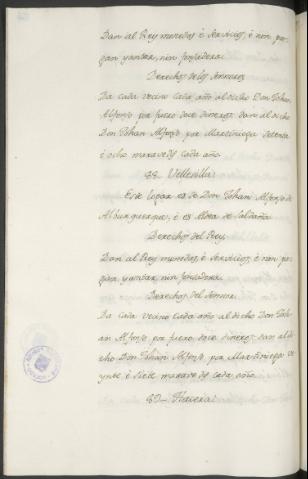 Dan al Rey monedas é servicios, é non pa-
gan yantar, nin fonsadera.
Derechos de los Sennores
Da cada vecino cada año al dicho Don Johan
Alfonso por fuero doce dineros: dan al dicho
Don Johan Alfonso por Martiniega setenta
é ocho maravedis cada año.
88. Vellosilla:
Este logar es de Don Johan Alfonso de
Alburquerque, é es
Derechos del Rey.
Dan al Rey monedas, é servicios, é non pa-
gan yantar, nin fonsadera.
Derechos del Sennor.
Da cada vecino cada año al dicho Don Joh-
an Alfonso, por fuero, doce dineros, dan al di-
cho Don Johan Alfonso, por Martiniega ve-
ynte é siete maravedis cada año.